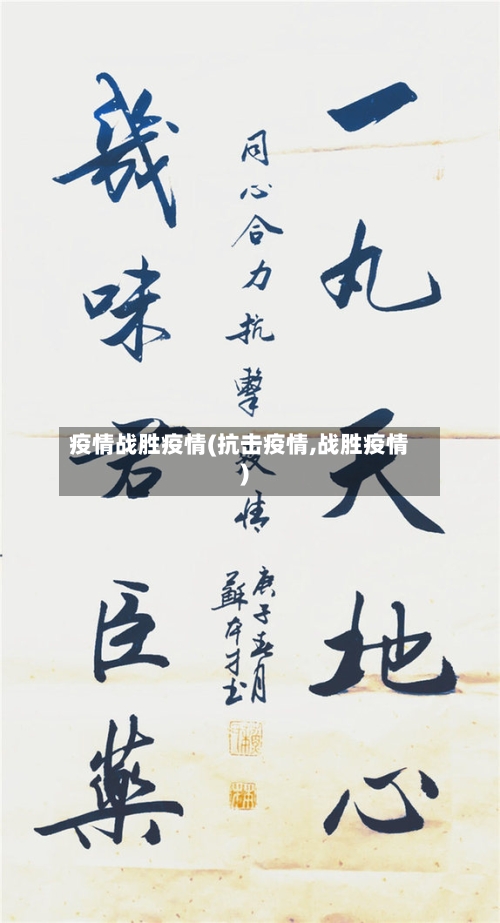 一丸天地心
同心合力抗擊疫情
庚子春月
蘇本才书
幾味君臣藥
疫情战胜疫情(抗击疫情,战胜疫情
)